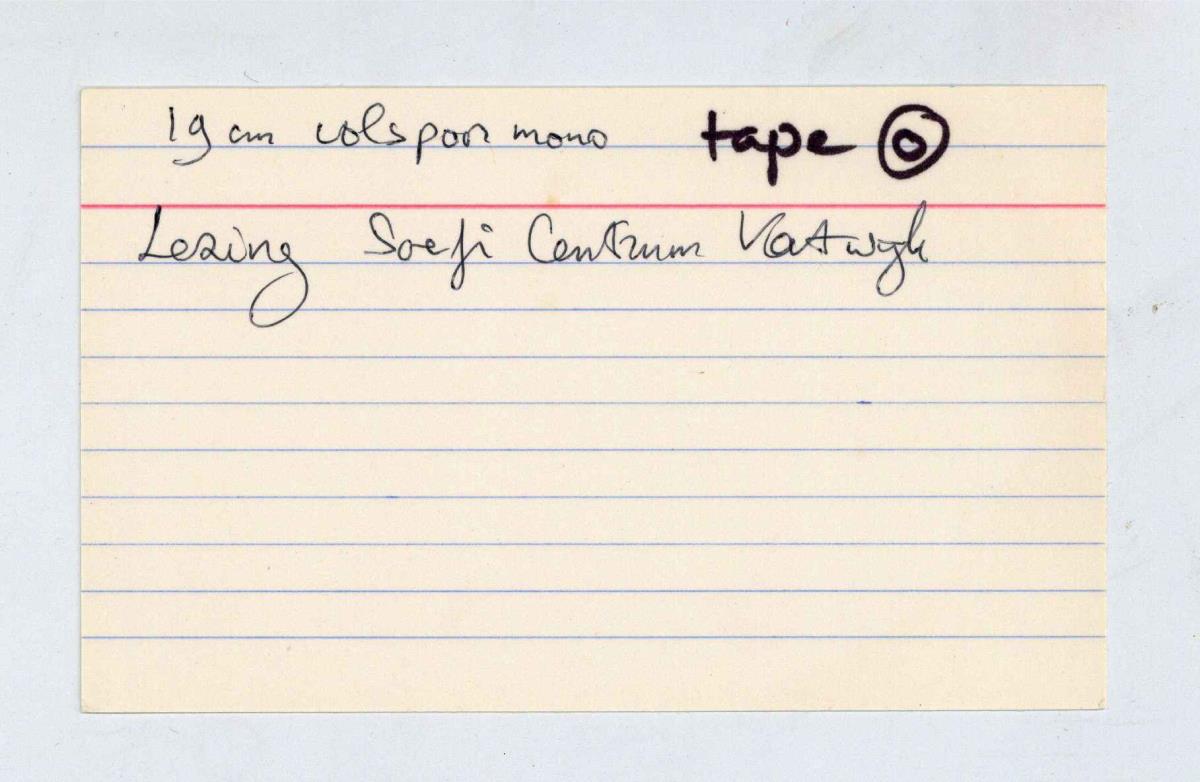 19 cm volspoor mono tape 0
Lezing Soefi Centrum Katwijk